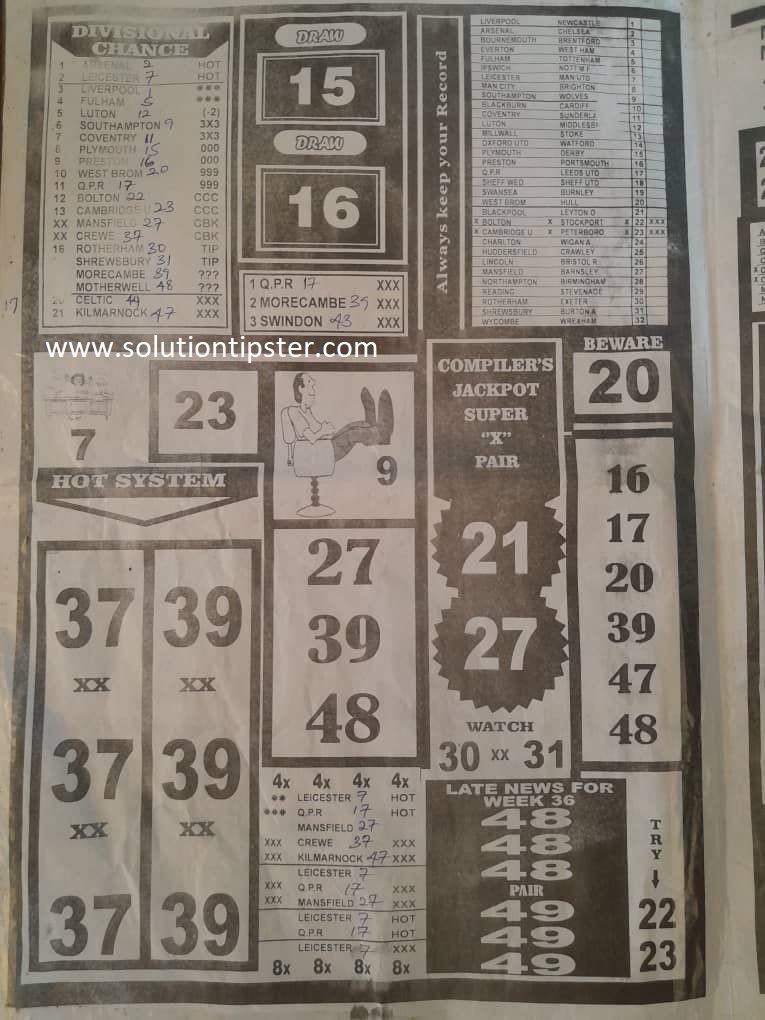 DIVISIONAL
CHANCE
1 ARSENAL 2 HOT
2 LEICESTER 7 HOT
3 LIVERPOOL 1 ***
4 FULHAM 5 ***
5 LUTON 12 (-2)
6 SOUTHAMPTON 9 3X3
7 COVENTRY 11 3X3
8 PLYMOUTH 15 000
9 PRESTON 16 000
10 WEST BROM 20 999
11 Q.P.R 17 999
12 BOLTON 22 CCC
13 CAMBRIDGE U 23 CCC
XX MANSFIELD 27 CBK
XX CREWE 37 CBK
16 ROTHERHAM 30 TIP
SHREWSBURY 31 TIP
MORECAMBE 39 ???
MOTHERWELL 48 ???
20 CELTIC 44 XXX
21 KILMARNOCK 47 XXX
17
DRAW
15
DRAW
16
1 Q.P.R 17 XXX
2 MORECAMBE 39 XXX
3 SWINDON 43 XXX
Always keep your Record
LIVERPOOL NEWCASTLE 1
ARSENAL CHELSEA 2
BOURNEMOUTH BRENTFORD 3
EVERTON WEST HAM 4
FULHAM TOTTENHAM 5
IPSWICH NOTT'M F 6
LEICESTER MAN UTD 7
MAN CITY BRIGHTON 8
SOUTHAMPTON WOLVES 9
BLACKBURN CARDIFF 10
COVENTRY SUNDERLA 11
LUTON MIDDLESBI 12
MILLWALL STOKE 13
OXFORD UTD WATFORD 14
PLYMOUTH DERBY 15
PRESTON PORTSMOUTH 16
Q.P.R LEEDS UTD 17
SHEFF WED SHEFF UTD 18
SWANSEA BURNLEY 19
WEST BROM HULL 20
BLACKPOOL LEYTON O 21
X BOLTON X STOCKPORT X 22 XXX
X CAMBRIDGE U X PETERBORO X 23 XXX
CHARLTON WIGAN A 24
HUDDERSFIELD CRAWLEY 25
LINCOLN BRISTOL R 26
MANSFIELD BARNSLEY 27
NORTHAMPTON BIRMINGHAM 28
READING STEVENAGE 29
ROTHERHAM EXETER 30
SHREWSBURY BURTON A 31
WYCOMBE WREXHAM 32
www.solutiontipster.com
7
23
9
HOT SYSTEM
37 39
XX XX
37 39
XX XX
37 39
27
39
48
4x 4x 4x 4x
** LEICESTER 7 HOT
*** Q.P.R 17 HOT
MANSFIELD 27
XXX CREWE 37 XXX
XXX KILMARNOCK 47 XXX
LEICESTER 7
XXX Q.P.R 17 XXX
XXX MANSFIELD 27 XXX
LEICESTER 7 HOT
Q.P.R 17 HOT
LEICESTER 7 XXX
8x 8x 8x 8x
COMPILER'S
JACKPOT
SUPER
"X"
PAIR
21
27
WATCH
30 XX 31
BEWARE
20
16
17
20
39
47
48
LATE NEWS FOR
WEEK 36
48
48
48
PAIR
49
49
49
TRY
22
23